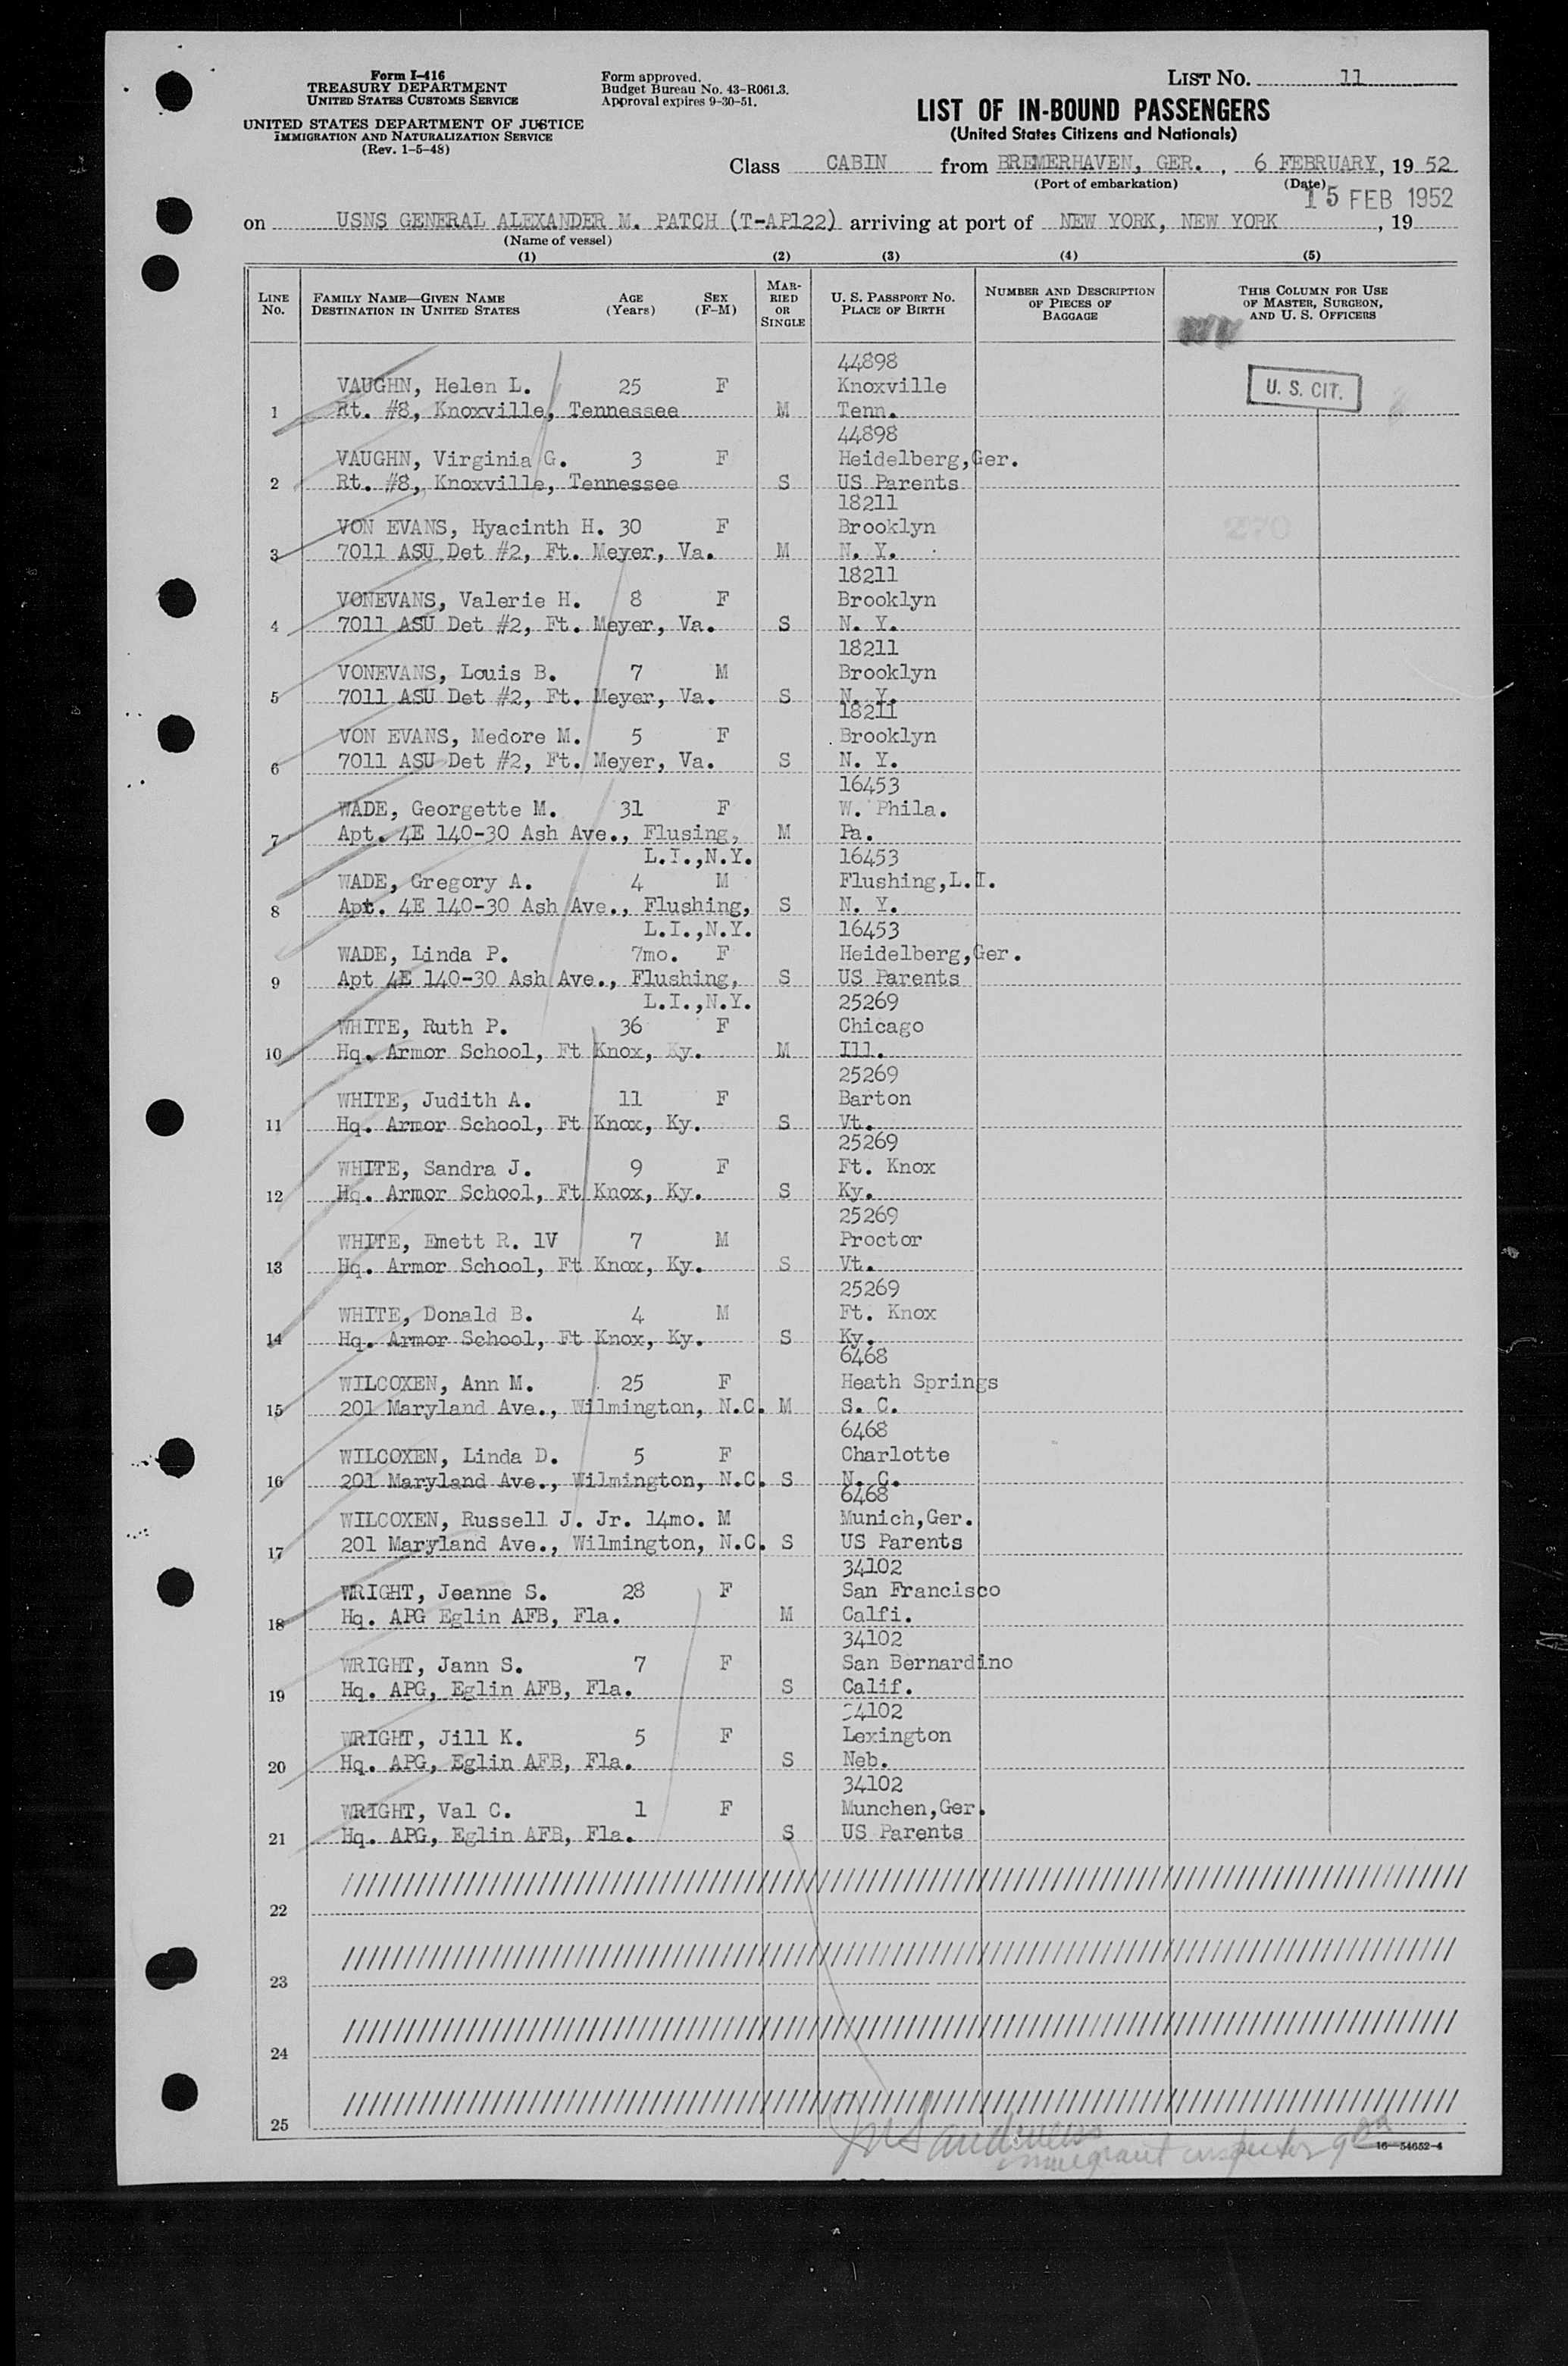 Form I-416
TREASURY DEPARTMENT
UNITED STATES CUSTOMS SERVICE
UNITED STATES DEPARTMENT OF JUSTICE
IMMIGRATION AND NATURALIZATION SERVICE
(Rev. 1-5-48)
Form approved.
Budget Bureau No. 43-R061.3.
Approval expires 9-30-51.
LIST NO. 11
LIST OF IN-BOUND PASSENGERS
(United States Citizens and Nationals)
Class CABIN from BREMERHAVEN, GER. , 6 FEBRUARY, 19 52
(Port of embarkation) (Date)
15 FEB 1952
on USNS GENERAL ALEXANDER M. PATCH (T-AP122) arriving at port of NEW YORK, NEW YORK , 19
(Name of vessel)
(1) (2) (3) (4) (5)
LINE NO. FAMILY NAME—GIVEN NAME DESTINATION IN UNITED STATES AGE (Years) SEX (F-M) MARRIED OR SINGLE U. S. PASSPORT NO. PLACE OF BIRTH NUMBER AND DESCRIPTION OF PIECES OF BAGGAGE THIS COLUMN FOR USE OF MASTER, SURGEON, AND U. S. OFFICERS
44898
VAUGHN, Helen L. 25 F Knoxville U. S. CIT.
1 Rt. #8, Knoxville, Tennessee M Tenn.
44898
VAUGHN, Virginia G. 3 F Heidelberg,Ger.
2 Rt. #8, Knoxville, Tennessee S US Parents
18211
VON EVANS, Hyacinth H. 30 F Brooklyn
3 7011 ASU Det #2, Ft. Meyer, Va. M N. Y.
18211
VONEVANS, Valerie H. 8 F Brooklyn
4 7011 ASU Det #2, Ft. Meyer, Va. S N. Y.
18211
VONEVANS, Louis B. 7 M Brooklyn
5 7011 ASU Det #2, Ft. Meyer, Va. S N. Y.
18211
VON EVANS, Medore M. 5 F Brooklyn
6 7011 ASU Det #2, Ft. Meyer, Va. S N. Y.
16453
WADE, Georgette M. 31 F W. Phila.
7 Apt. 4E 140-30 Ash Ave., Flusing, M Pa.
L.I.,N.Y. 16453
WADE, Gregory A. 4 M Flushing,L.I.
8 Apt. 4E 140-30 Ash Ave., Flushing, S N. Y.
L.I.,N.Y. 16453
WADE, Linda P. 7mo. F Heidelberg,Ger.
9 Apt 4E 140-30 Ash Ave., Flushing, S US Parents
L.I.,N.Y. 25269
WHITE, Ruth P. 36 F Chicago
10 Hq. Armor School, Ft Knox, Ky. M Ill.
25269
WHITE, Judith A. 11 F Barton
11 Hq. Armor School, Ft Knox, Ky. S Vt.
25269
WHITE, Sandra J. 9 F Ft. Knox
12 Hq. Armor School, Ft Knox, Ky. S Ky.
25269
WHITE, Emett R. 1V 7 M Proctor
13 Hq. Armor School, Ft Knox, Ky. S Vt.
25269
WHITE, Donald B. 4 M Ft. Knox
14 Hq. Armor School, Ft Knox, Ky. S Ky.
6468
WILCOXEN, Ann M. 25 F Heath Springs
15 201 Maryland Ave., Wilmington, N.C. M S. C.
6468
WILCOXEN, Linda D. 5 F Charlotte
16 201 Maryland Ave., Wilmington, N.C. S N. C.
6468
WILCOXEN, Russell J. Jr. 14mo. M Munich,Ger.
17 201 Maryland Ave., Wilmington, N.C. S US Parents
34102
WRIGHT, Jeanne S. 28 F San Francisco
18 Hq. APG Eglin AFB, Fla. M Calfi.
34102
WRIGHT, Jann S. 7 F San Bernardino
19 Hq. APG, Eglin AFB, Fla. S Calif.
34102
WRIGHT, Jill K. 5 F Lexington
20 Hq. APG, Eglin AFB, Fla. S Neb.
34102
WRIGHT, Val C. 1 F Munchen,Ger.
21 Hq. APG, Eglin AFB, Fla. S US Parents
22
23
24
25
immigrant inspector
16—54652-4